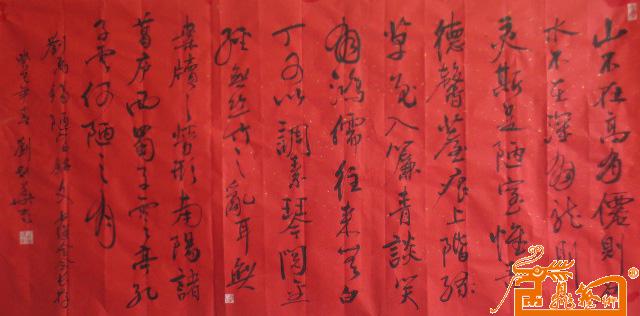 山不在高有僊則名
水不在深有龍則
灵斯是陋室惟吾
德馨苔痕上階綠
草色入簾青談笑
有鴻儒往來无白
丁可以調素琴閱金
經無絲竹之亂耳無
案牘之勞形南陽諸
葛廬西蜀子雲亭孔
子云何陋之有
劉禹錫陋室銘文